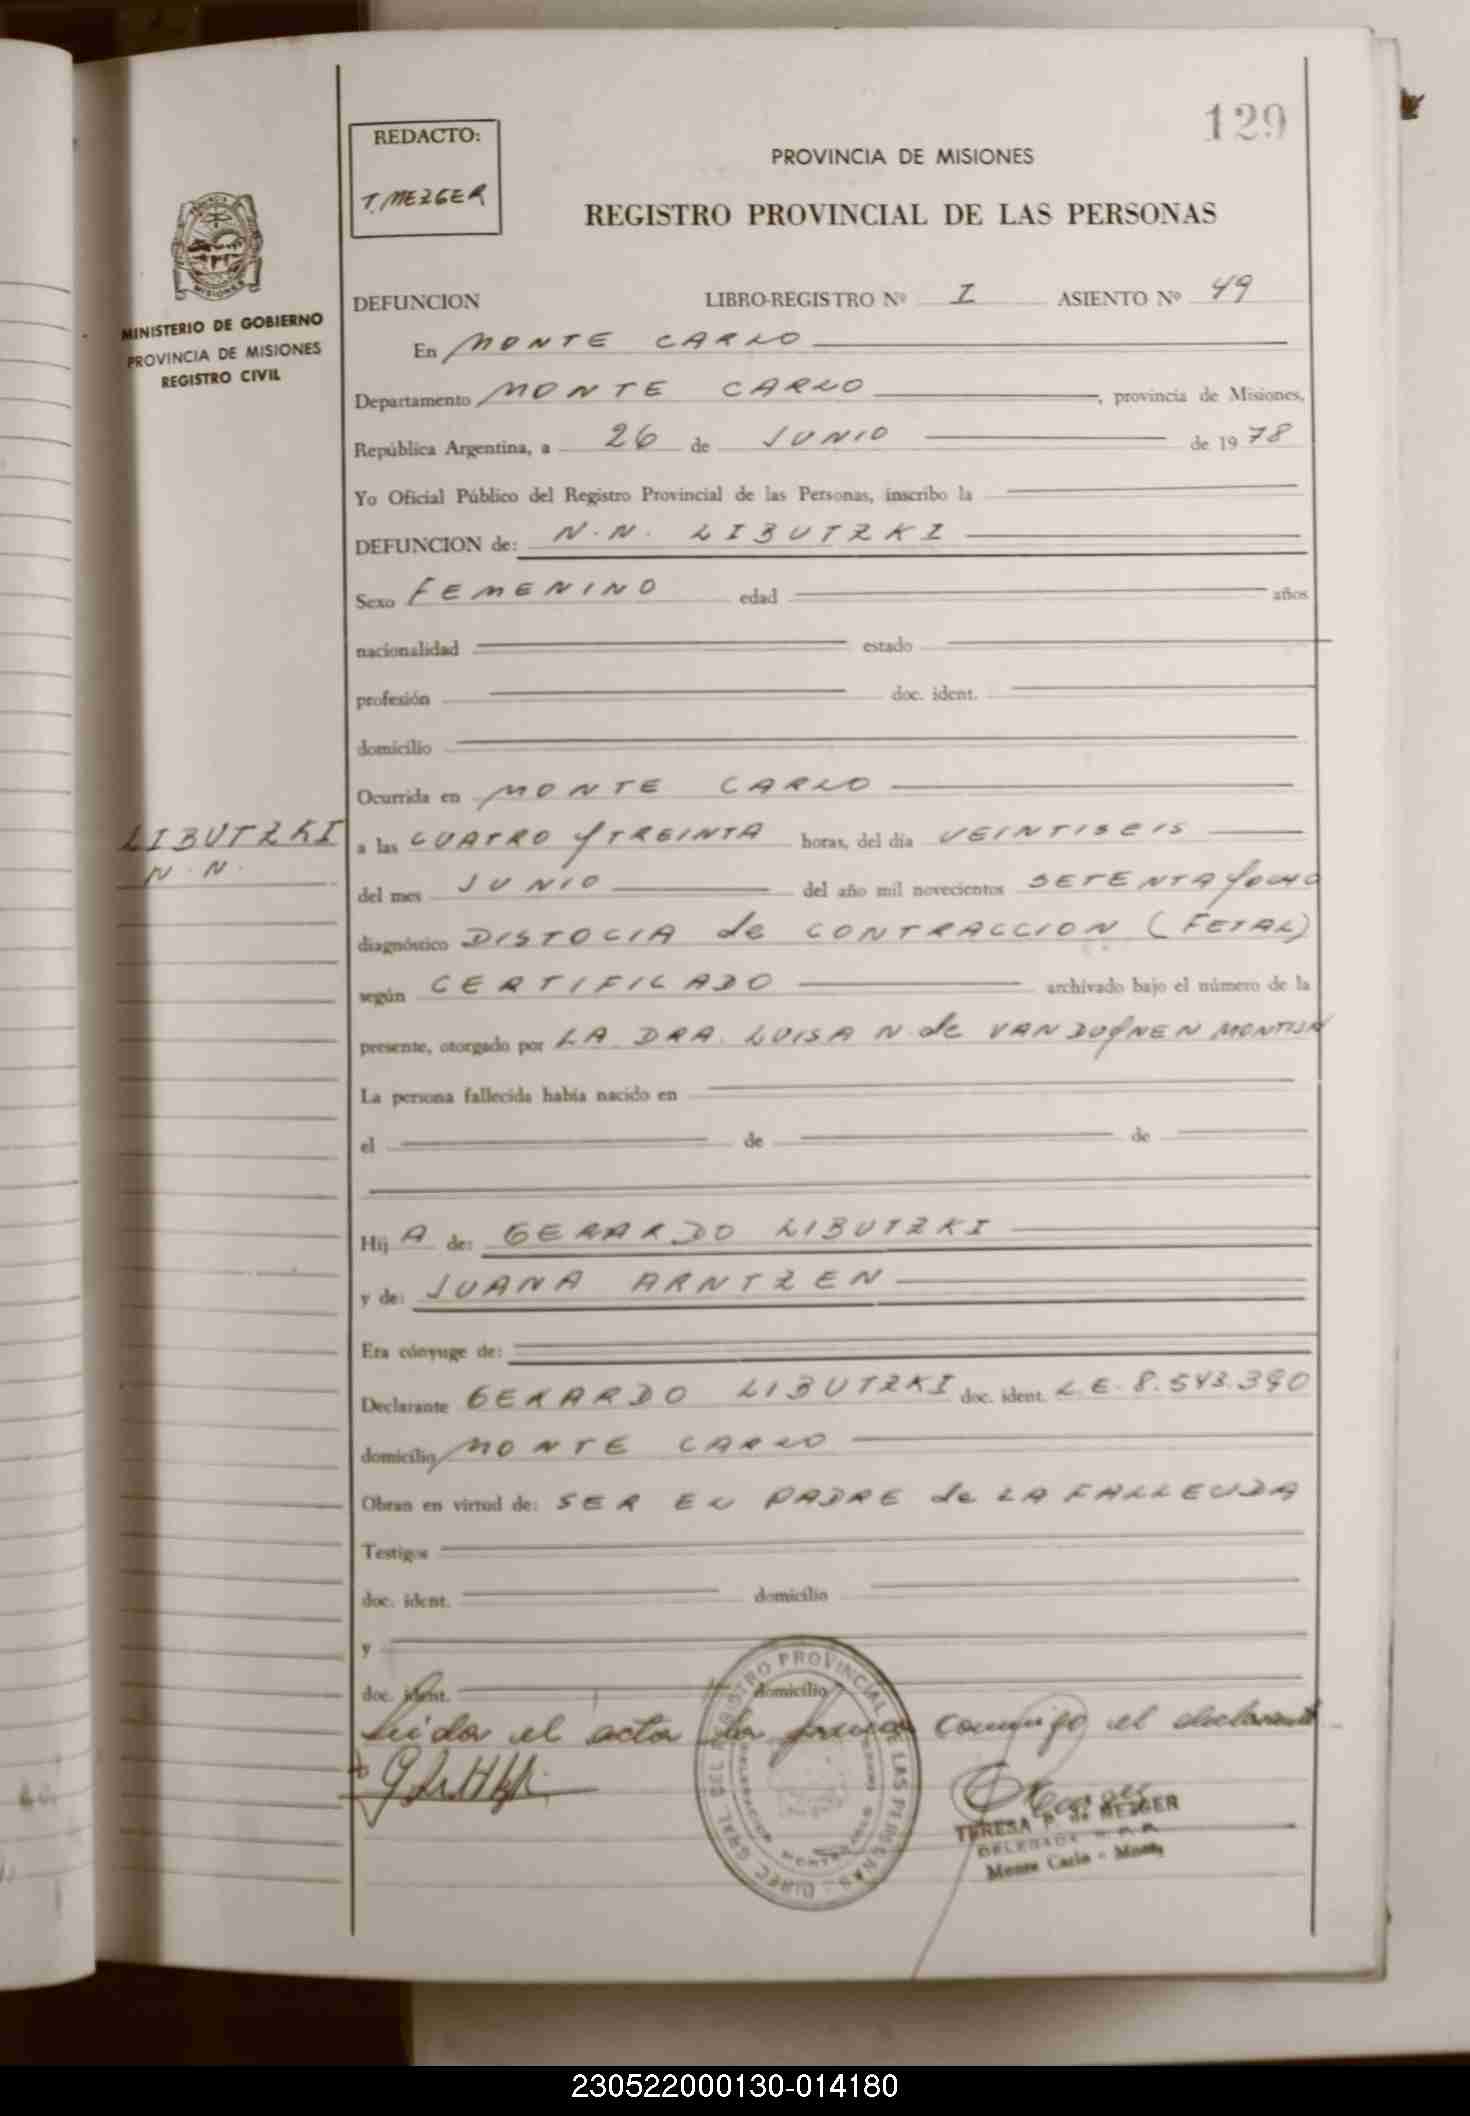 129
REDACTO:
T. MEZGER
PROVINCIA DE MISIONES
REGISTRO PROVINCIAL DE LAS PERSONAS
MISIONES
MINISTERIO DE GOBIERNO
PROVINCIA DE MISIONES
REGISTRO CIVIL
DEFUNCION LIBRO-REGISTRO Nº I ASIENTO Nº 49
En MONTE CARLO
Departamento MONTE CARLO, provincia de Misiones,
República Argentina, a 26 de JUNIO de 1978
Yo Oficial Público del Registro Provincial de las Personas, inscribo la
DEFUNCION de: N.N. LIBUTZKI
Sexo FEMENINO edad años
nacionalidad estado
profesión doc. ident.
domicilio
Ocurrida en MONTE CARLO
LIBUTZKI
N.N.
a las CUATRO y TREINTA horas, del día VEINTISEIS
del mes JUNIO del año mil novecientos SETENTA y OCHO
diagnóstico DISTOCIA de CONTRACCION (FETAL)
según CERTIFICADO archivado bajo el número de la
presente, otorgado por LA DRA. LUISA N. de VAN DUYNEN MONTIJN
La persona fallecida había nacido en
el de de
Hij A de: GERARDO LIBUTZKI
y de: JUANA ARNTZEN
Era cónyuge de:
Declarante GERARDO LIBUTZKI doc. ident. L.E. 8.543.390
domicilio MONTE CARLO
Obran en virtud de: SER EL PADRE de LA FALLECIDA
Testigos
doc. ident. domicilio
y
doc. ident. domicilio
Leida el acta la firma conmigo el declarante
DIREC. GRAL. DEL REGISTRO PROVINCIAL DE LAS PERSONAS
TERESA P. de MEZGER
DELEGADA R. P. P.
Monte Carlo - Mnes.
230522000130-014180